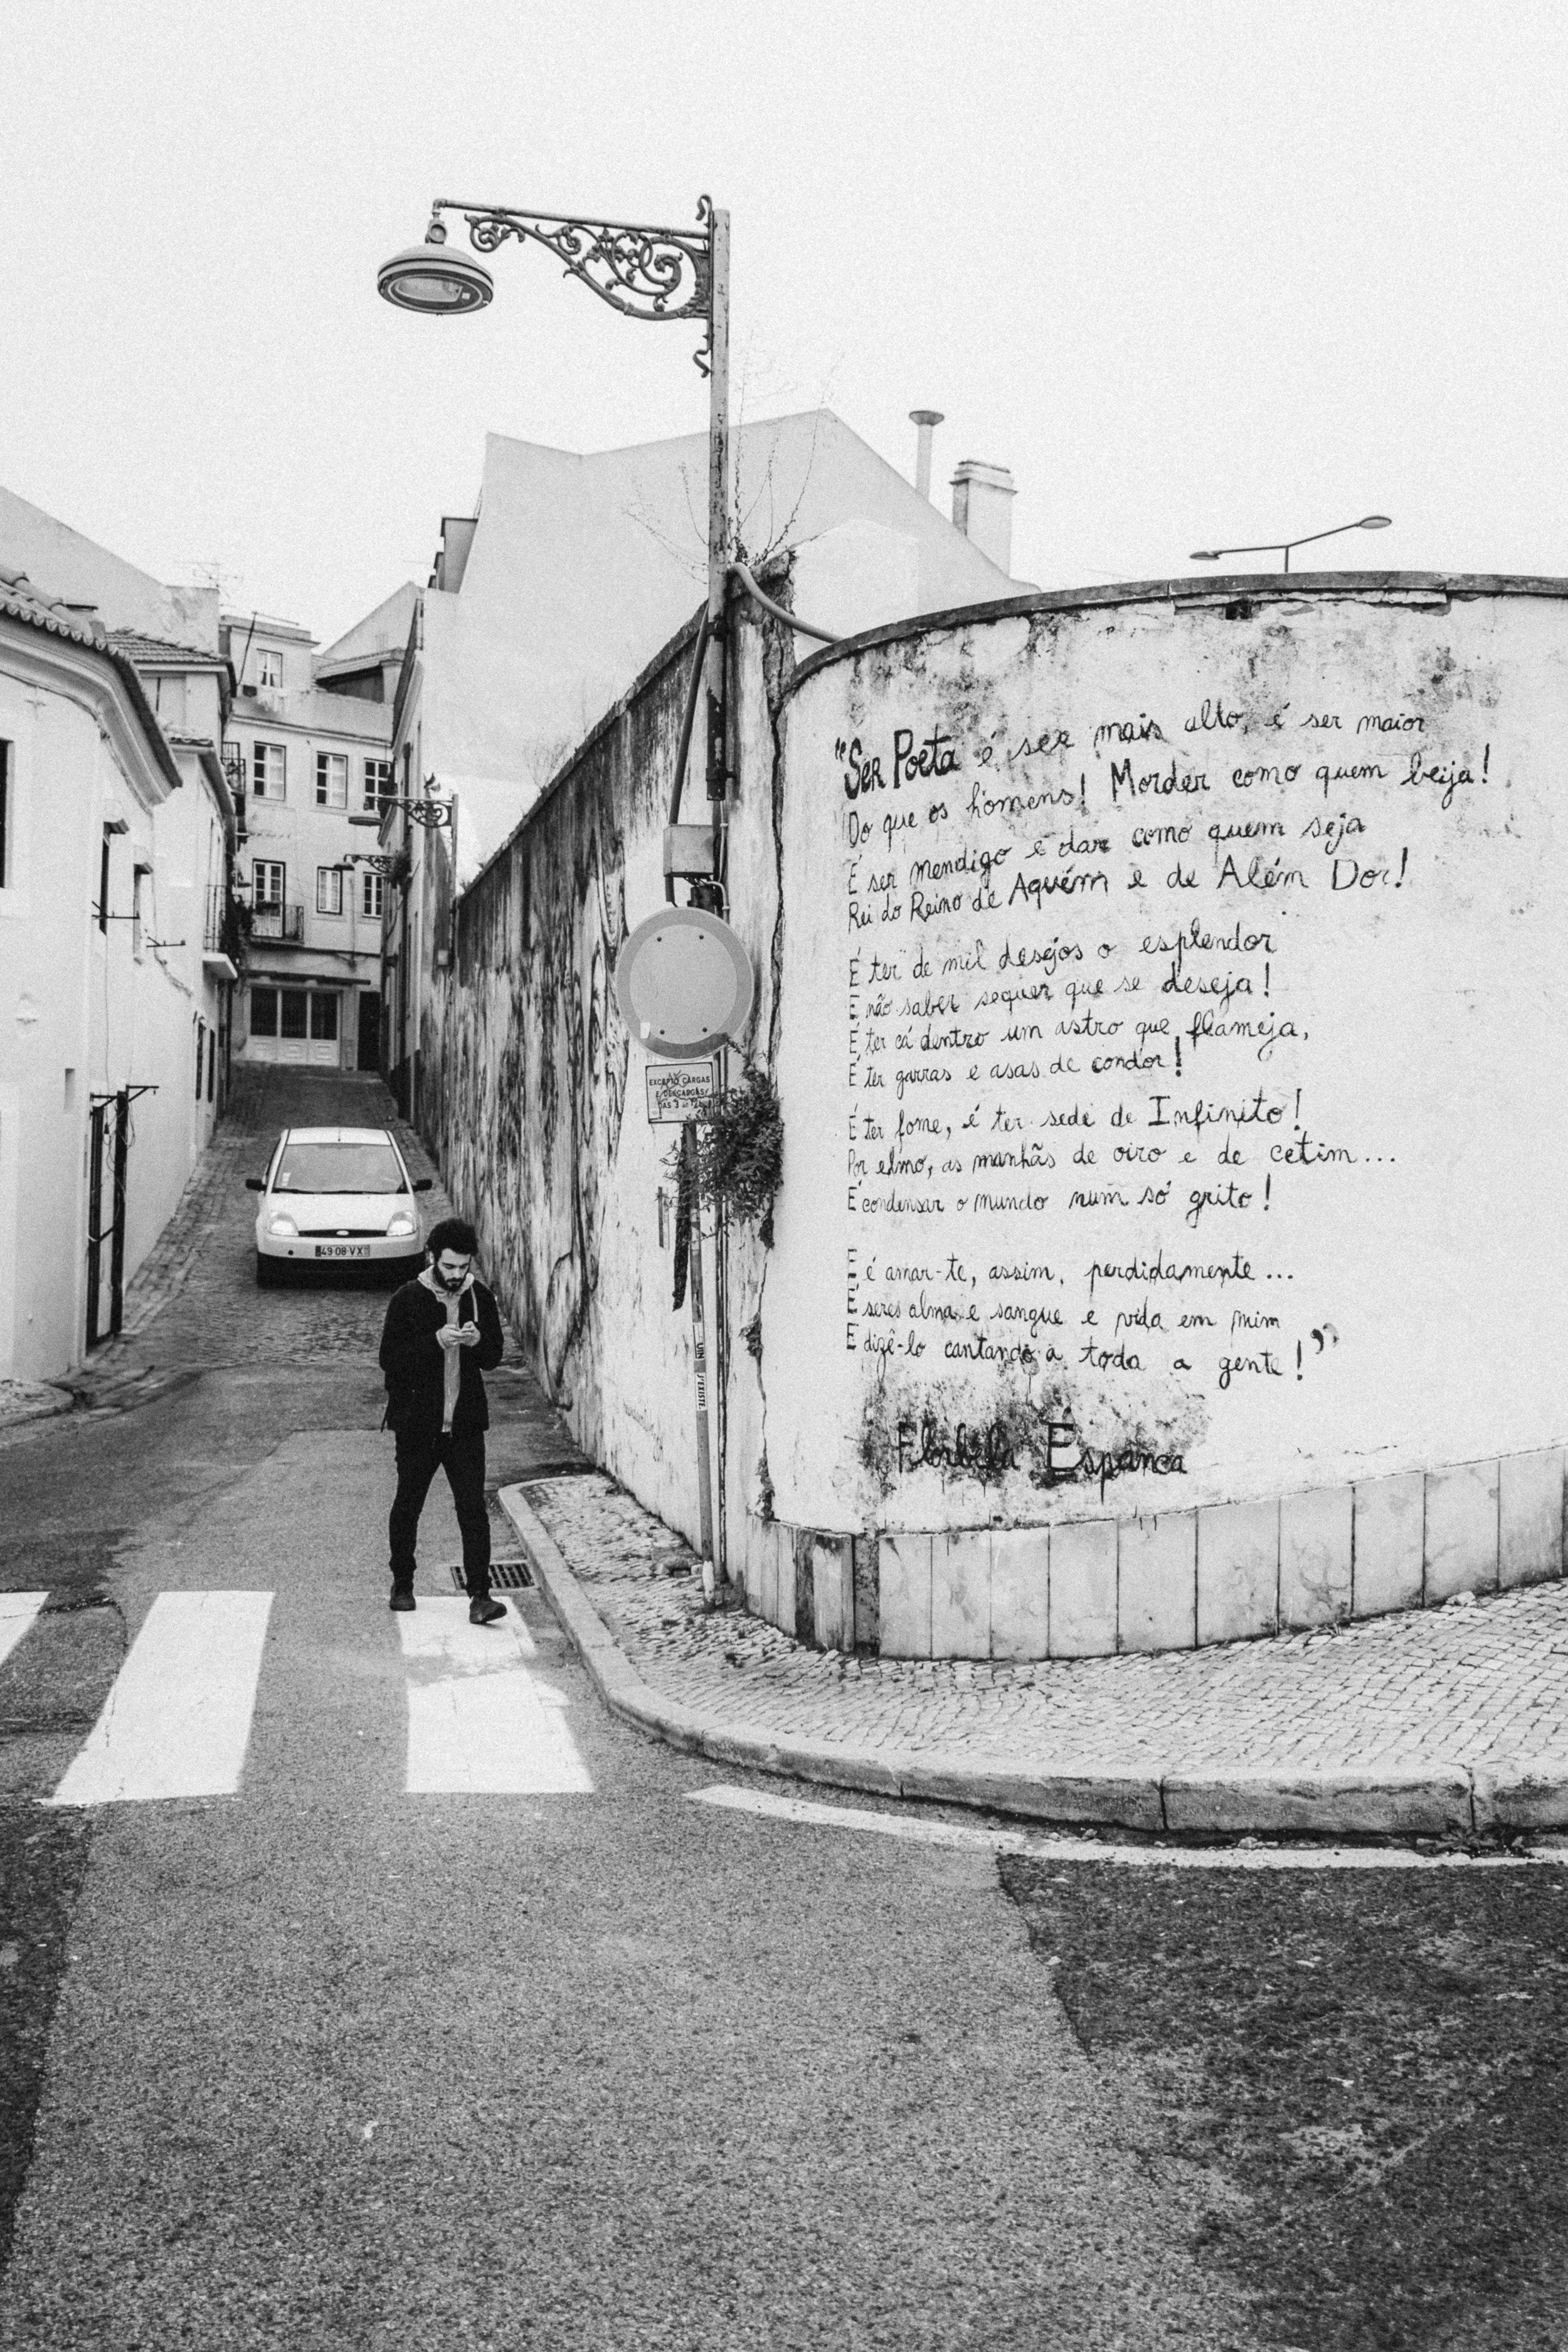 "Ser Poeta é ser mais alto, é ser maior
Do que os homens! Morder como quem beija!
É ser mendigo e dar como quem seja
Rei do Reino de Aquém e de Além Dor!
É ter de mil desejos o esplendor
E não saber sequer que se deseja!
É ter cá dentro um astro que flameja,
É ter garras e asas de condor!
É ter fome, é ter sede de Infinito!
Por elmo, as manhãs de oiro e de cetim...
É condensar o mundo num só grito!
E é amar-te, assim, perdidamente...
É seres alma e sangue e vida em mim
E dizê-lo cantando a toda a gente!"
Florbela Espanca
EXCEPTO CARGAS
E DESCARGAS
49-08-VX